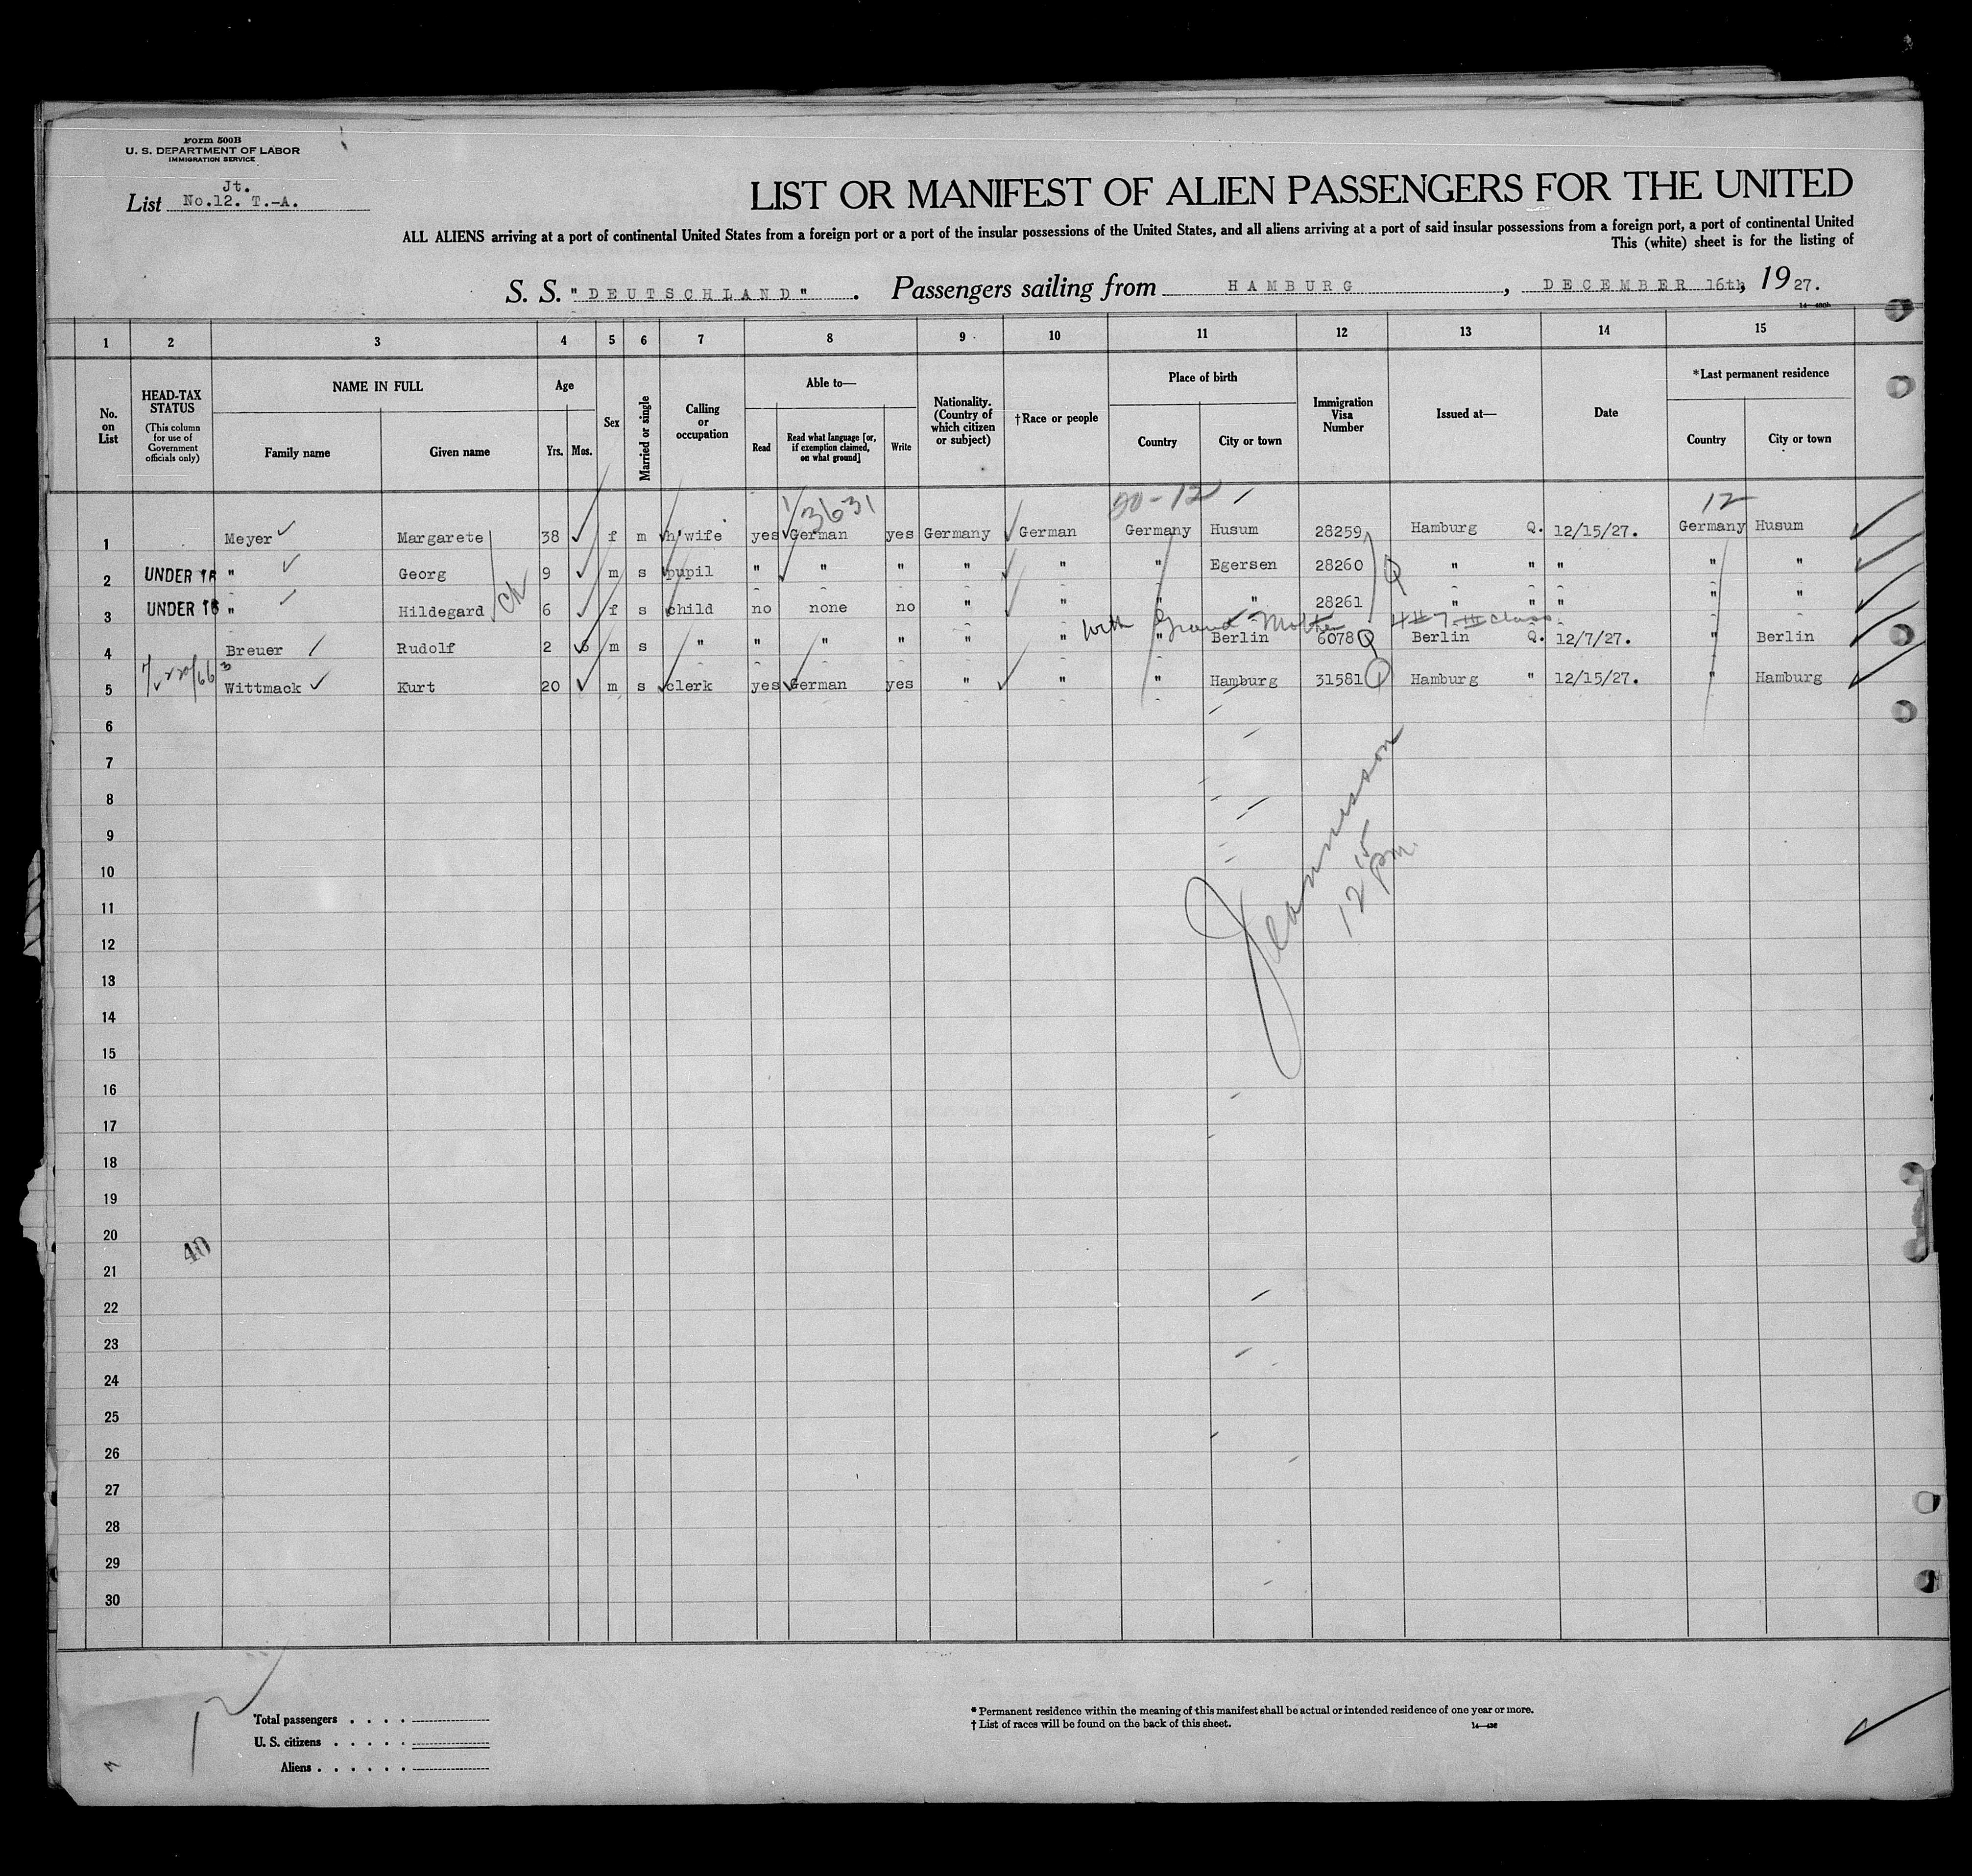 Form 500B
U. S. DEPARTMENT OF LABOR
IMMIGRATION SERVICE
Jt.
List No.12. T.-A.
LIST OR MANIFEST OF ALIEN PASSENGERS FOR THE UNITED
ALL ALIENS arriving at a port of continental United States from a foreign port or a port of the insular possessions of the United States, and all aliens arriving at a port of said insular possessions from a foreign port, a port of continental United
This (white) sheet is for the listing of
S. S. "DEUTSCHLAND". Passengers sailing from HAMBURG, DECEMBER 16th, 1927.
1 2 3 4 5 6 7 8 9 10 11 12 13 14 15
No. on List
HEAD-TAX STATUS (This column for use of Government officials only)
NAME IN FULL
Family name
Given name
Age
Yrs. Mos.
Sex
Married or single
Calling or occupation
Able to—
Read
Read what language [or, if exemption claimed, on what ground]
Write
Nationality. (Country of which citizen or subject)
†Race or people
Place of birth
Country
City or town
Immigration Visa Number
Issued at—
Date
*Last permanent residence
Country
City or town
3631 20-12 12
1 Meyer Margarete 38 f m h'wife yes German yes Germany German Germany Husum 28259 Hamburg Q. 12/15/27. Germany Husum
2 UNDER 16 " Georg 9 m s pupil " " " " " " Egersen 28260 Q " " " " "
3 UNDER 16 " Hildegard 6 f s child no none no " " " " 28261 " " " " "
Ch
With Grand Mother 4 # 7 III class
4 Breuer Rudolf 2 6 m s " " " " " " " Berlin 6078 Q Berlin Q. 12/7/27. " Berlin
5 Wittmack Kurt 20 m s clerk yes German yes " " " Hamburg 31581 Q Hamburg " 12/15/27. " Hamburg
6
7
8
9
10
11
12
13
14
15
16
17
18
19
20
21
22
23
24
25
26
27
28
29
30
12 15 pm
40
Total passengers . . . .
U. S. citizens . . . . .
Aliens . . . . . .
* Permanent residence within the meaning of this manifest shall be actual or intended residence of one year or more.
† List of races will be found on the back of this sheet.